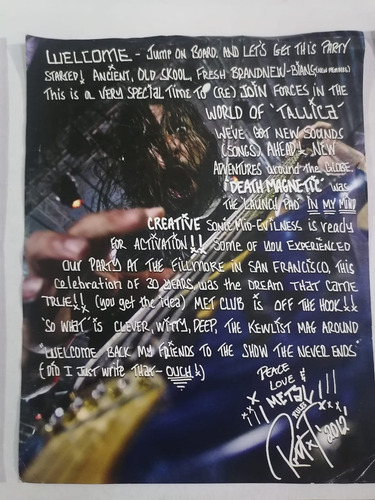 WELCOME - JUMP ON BOARD, AND LET'S GET THIS PARTY
STARTED! ANCIENT, OLD SKOOL, FRESH BRANDNEW-BIANG (NEW MEMBERS)
THIS IS A VERY SPECIAL TIME TO (RE) JOIN FORCES IN THE
WORLD OF 'TALLICA'
WE'VE GOT NEW SOUNDS
(SONGS) AHEAD & NEW
ADVENTURES AROUND THE GLOBE.
'DEATH MAGNETIC' WAS
THE LAUNCH PAD IN MY MIND
CREATIVE SONIC MID-EVILNESS IS READY
FOR ACTIVATION!! SOME OF YOU EXPERIENCED
OUR PARTY AT THE FILLMORE IN SAN FRANCISCO, THIS
CELEBRATION OF 30 YEARS WAS THE DREAM THAT CAME
TRUE!! (YOU GET THE IDEA) MET CLUB IS OFF THE HOOK!!
'SO WHAT' IS CLEVER, WITTY, DEEP, THE KEWLIST MAG AROUND
'WELCOME BACK MY FRIENDS TO THE SHOW THE NEVER ENDS'
(DID I JUST WRITE THAT - OUCH!)
PEACE
LOVE &
METAL!!!
RULES
2012